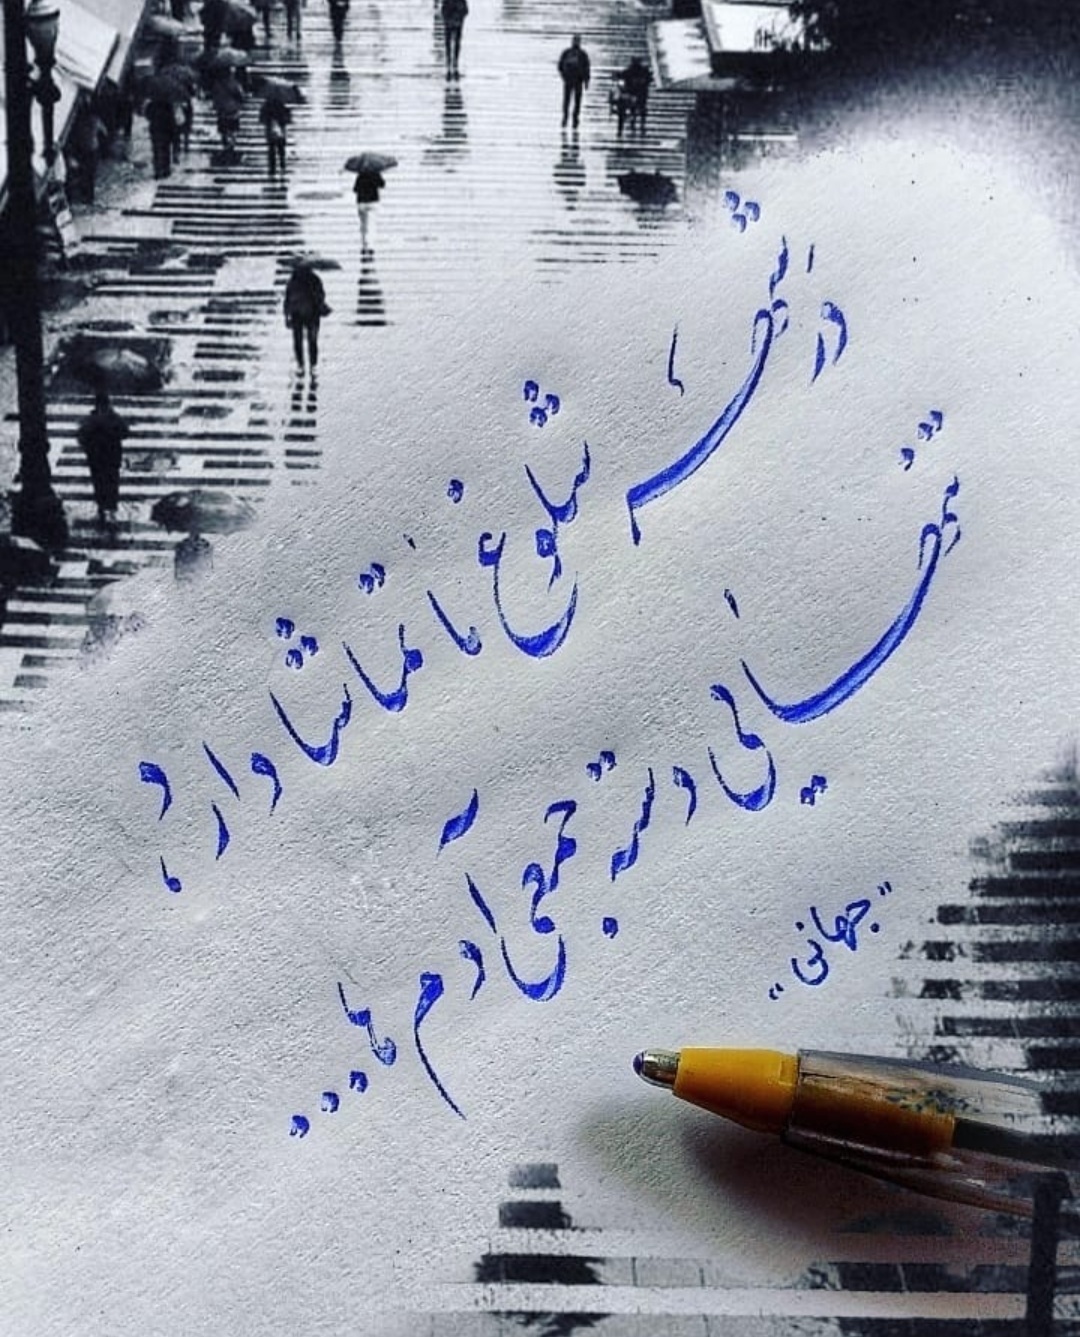 در شهر شلوغ ما تماشا دارد،
تنهایی دسته جمعی آدم ها...
"جهانی"